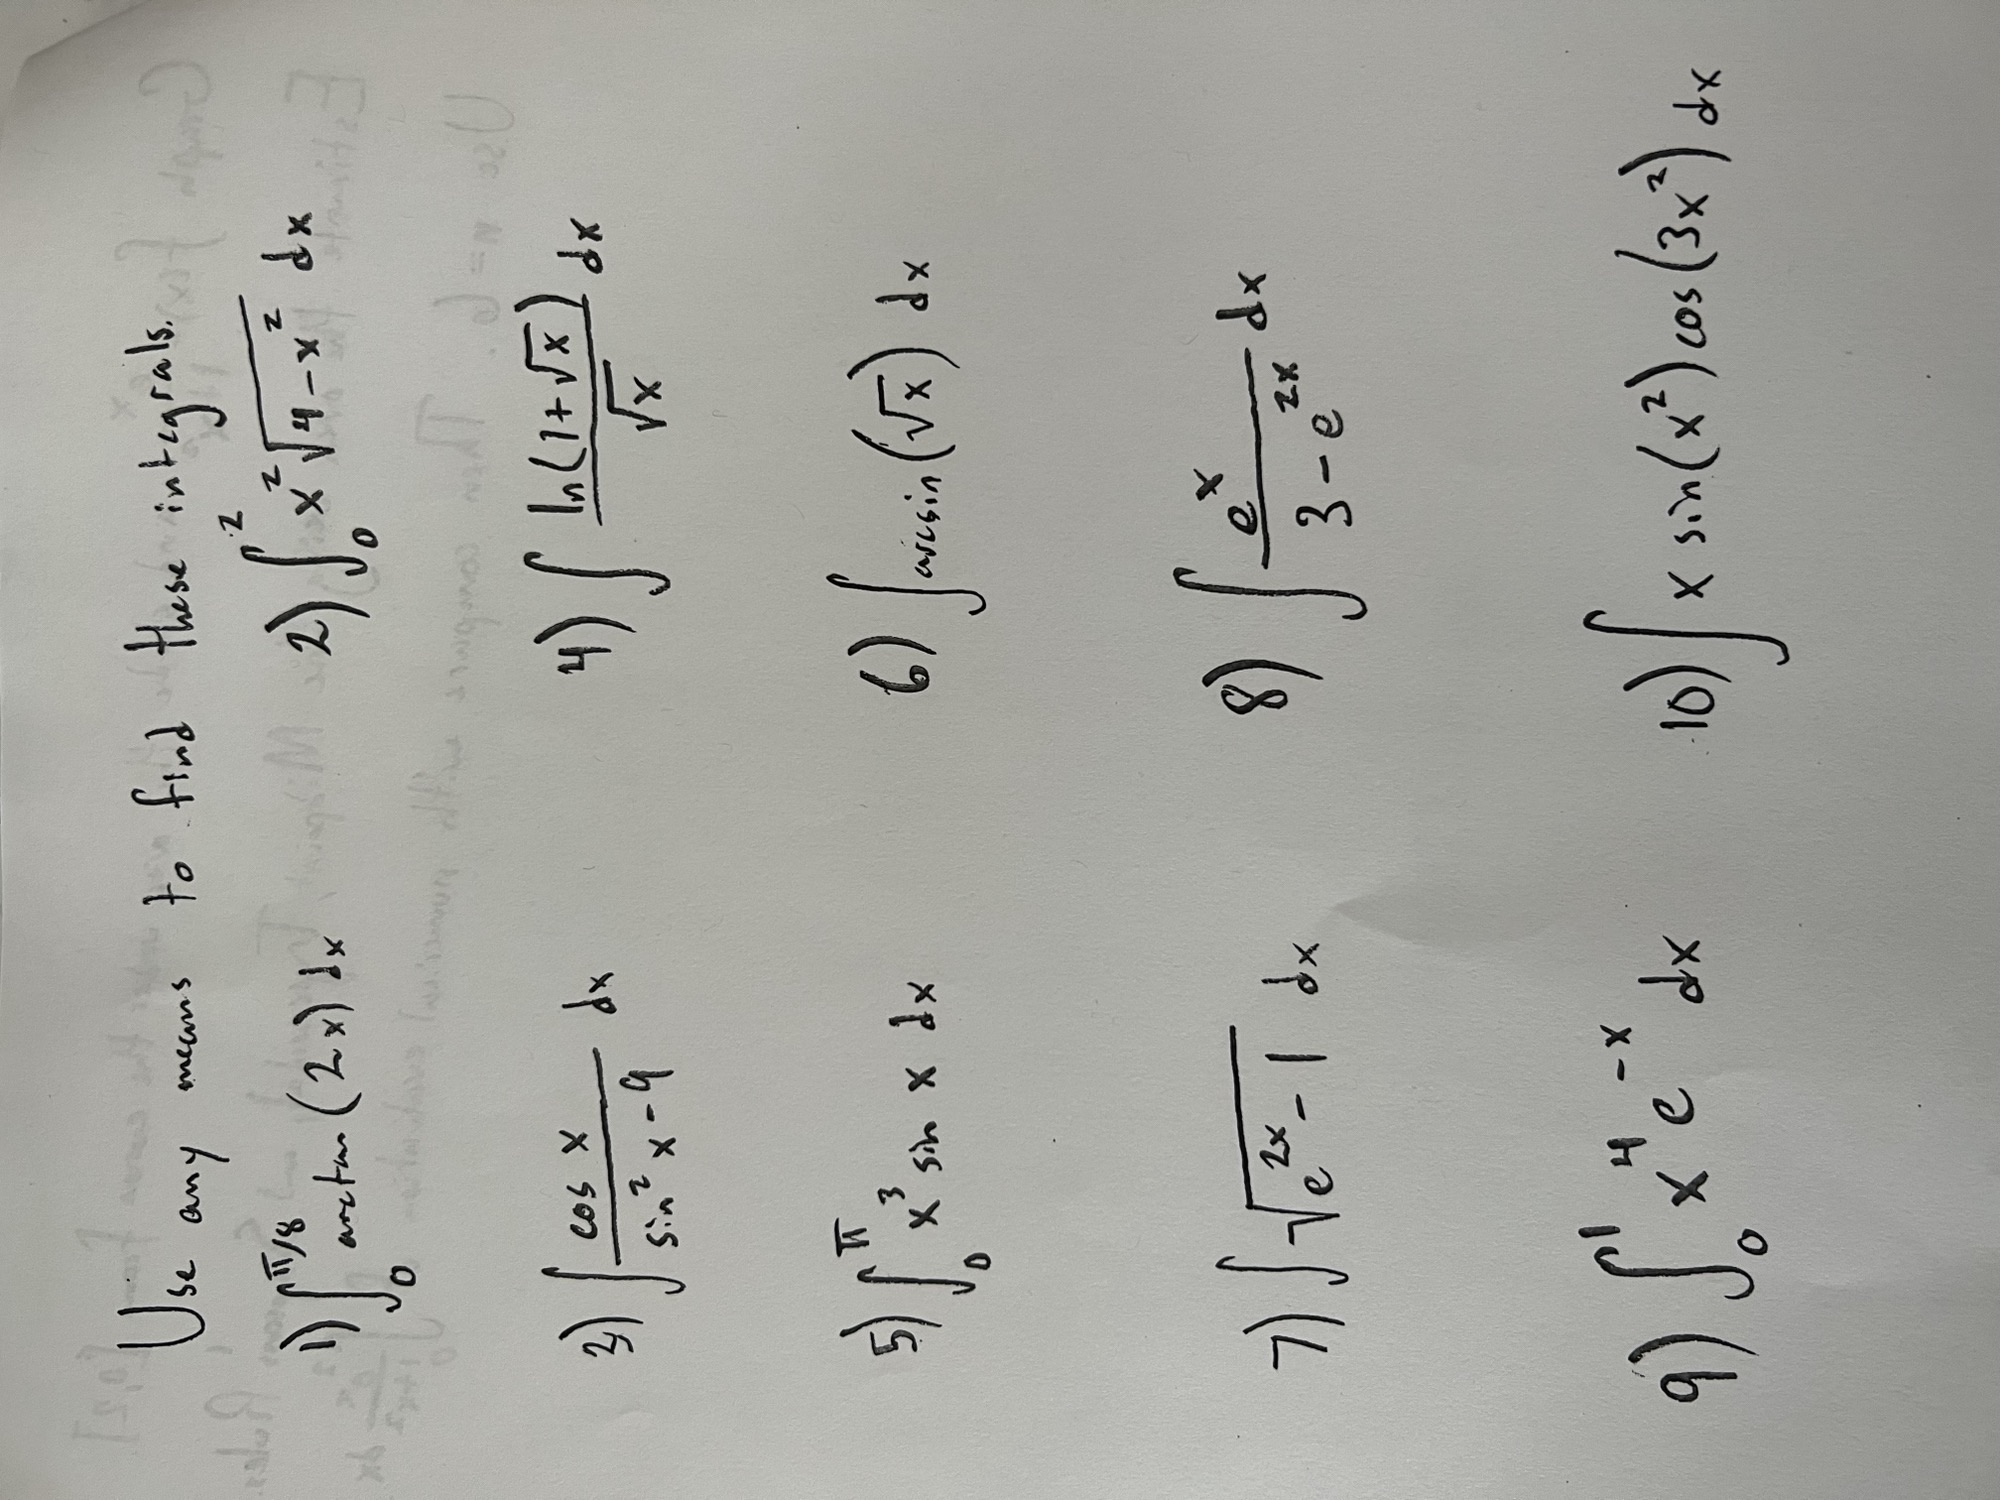 Use any means to find these integrals.
1) ∫₀^(π/8) arctan(2x) dx 2) ∫₀² x²√(4-x²) dx
3) ∫ cos x / (sin² x - 9) dx 4) ∫ ln(1+√x) / √x dx
5) ∫₀^π x³ sin x dx 6) ∫ arcsin(√x) dx
7) ∫ √(e^(2x) - 1) dx 8) ∫ e^x / (3 - e^(2x)) dx
9) ∫₀¹ x⁴ e^(-x) dx 10) ∫ x sin(x²) cos(3x²) dx